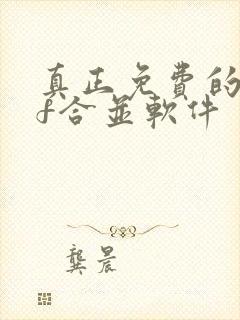 真正免費的
f合並軟件
龔晨